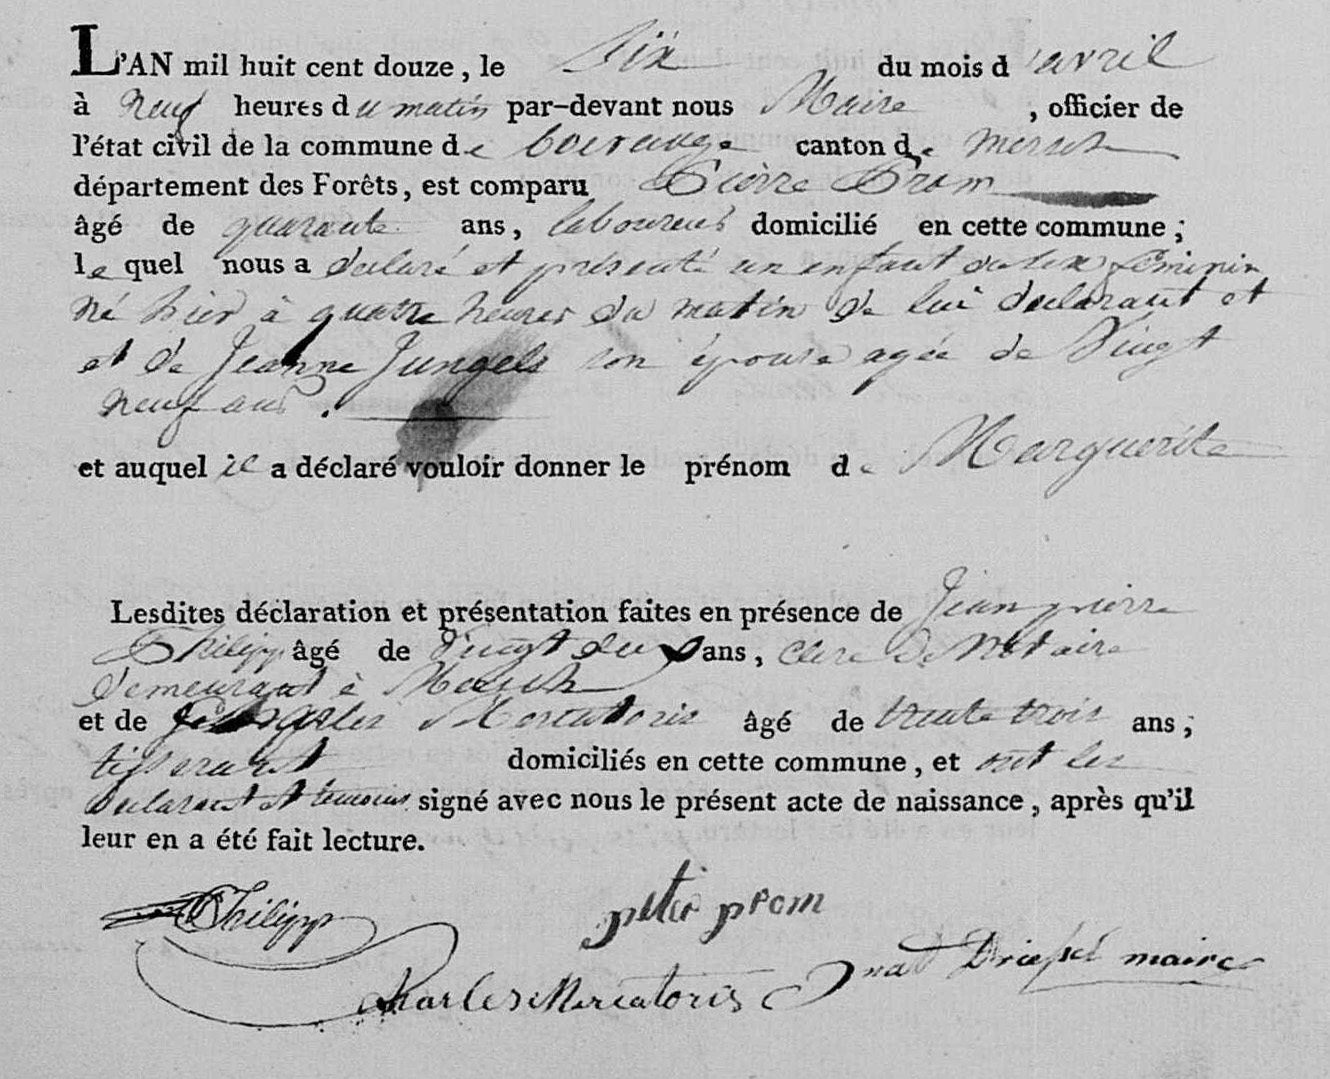 L'AN mil huit cent douze, le Six du mois d'avril
à neuf heures du matin par-devant nous Maire, officier de
l'état civil de la commune de boevange canton de mersch
département des Forêts, est comparu Pierre Prom
âgé de quarante ans, laboureur domicilié en cette commune;
le quel nous a declaré et présenté un enfant du sex féminin
né hier à quatre heures du matin de lui declarant et
et de Jeanne Jungels son épouse agée de Vingt
neuf ans.
et auquel il a déclaré vouloir donner le prénom de Marguerite
Lesdites déclaration et présentation faites en présence de Jean pierre
Philipp âgé de Vingt deux ans, clerc de Notaire
demeurant à Mersch
et de Charles Mercatoris âgé de trente trois ans;
tisserant domiciliés en cette commune, et ont les
declarant et temoins signé avec nous le présent acte de naissance, après qu'il
leur en a été fait lecture.
Philipp peter prom
Charles Mercatoris Driessel maire